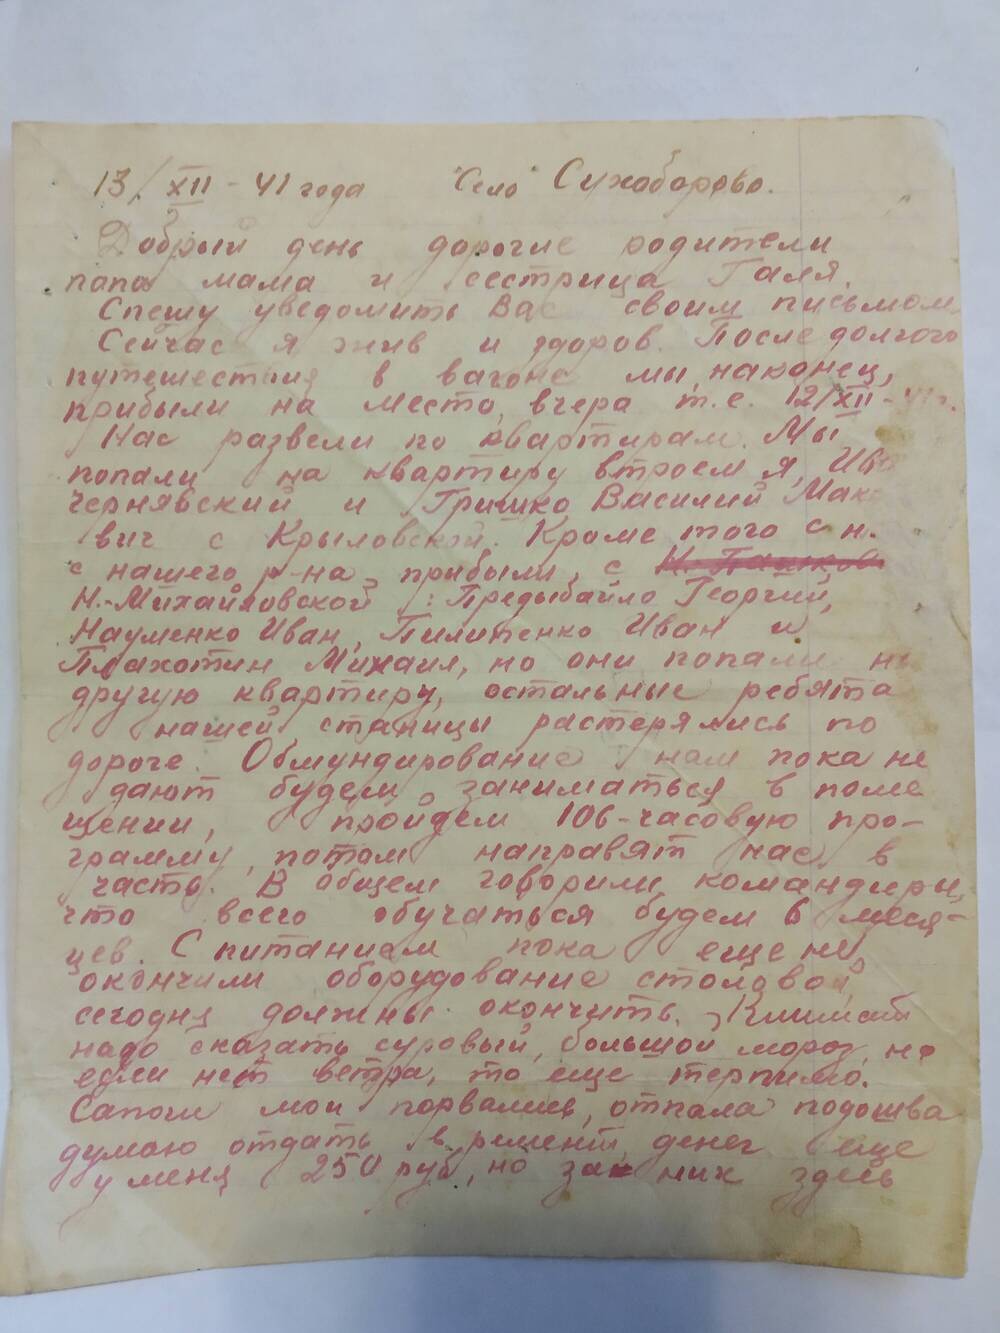 13/XII - 41 года "Село" Сухоборово.
Добрый день дорогие родители
папа мама и сестрица Галя.
Спешу уведомить Вас своим письмом
Сейчас я жив и здоров. После долгого
путешествия в вагоне мы, наконец,
прибыли на место, вчера т.е. 12/XII - 41г.
Нас развели по квартирам. Мы
попали на квартиру втроем я, Ива
чернявский и Гришко Василий Мак
вич с Крыловской. Кроме того с н.
с нашего р-на прибыли, с
Н.-Михайловской: Предыбайло Георгий,
Науменко Иван, Пилипенко Иван и
Плахотин Михаил, но они попали н
другую квартиру, остальные ребята
нашей станицы растерялись по
дороге. Обмундирование нам пока не
дают будем заниматься в поме
щении, пройдем 106-часовую про-
грамму, потом направят нас в
часть. В общем говорили командиры,
что всего обучаться будем 6 меся-
цев. С питанием пока еще не
окончили оборудование столовой,
сегодня должны окончить. Климат
надо сказать суровый, большой мороз, но
если нет ветра, то еще терпимо.
Сапоги мои порвались, отпала подошва
думаю отдать в ремонт, денег еще
у меня 250 руб, но за них здесь